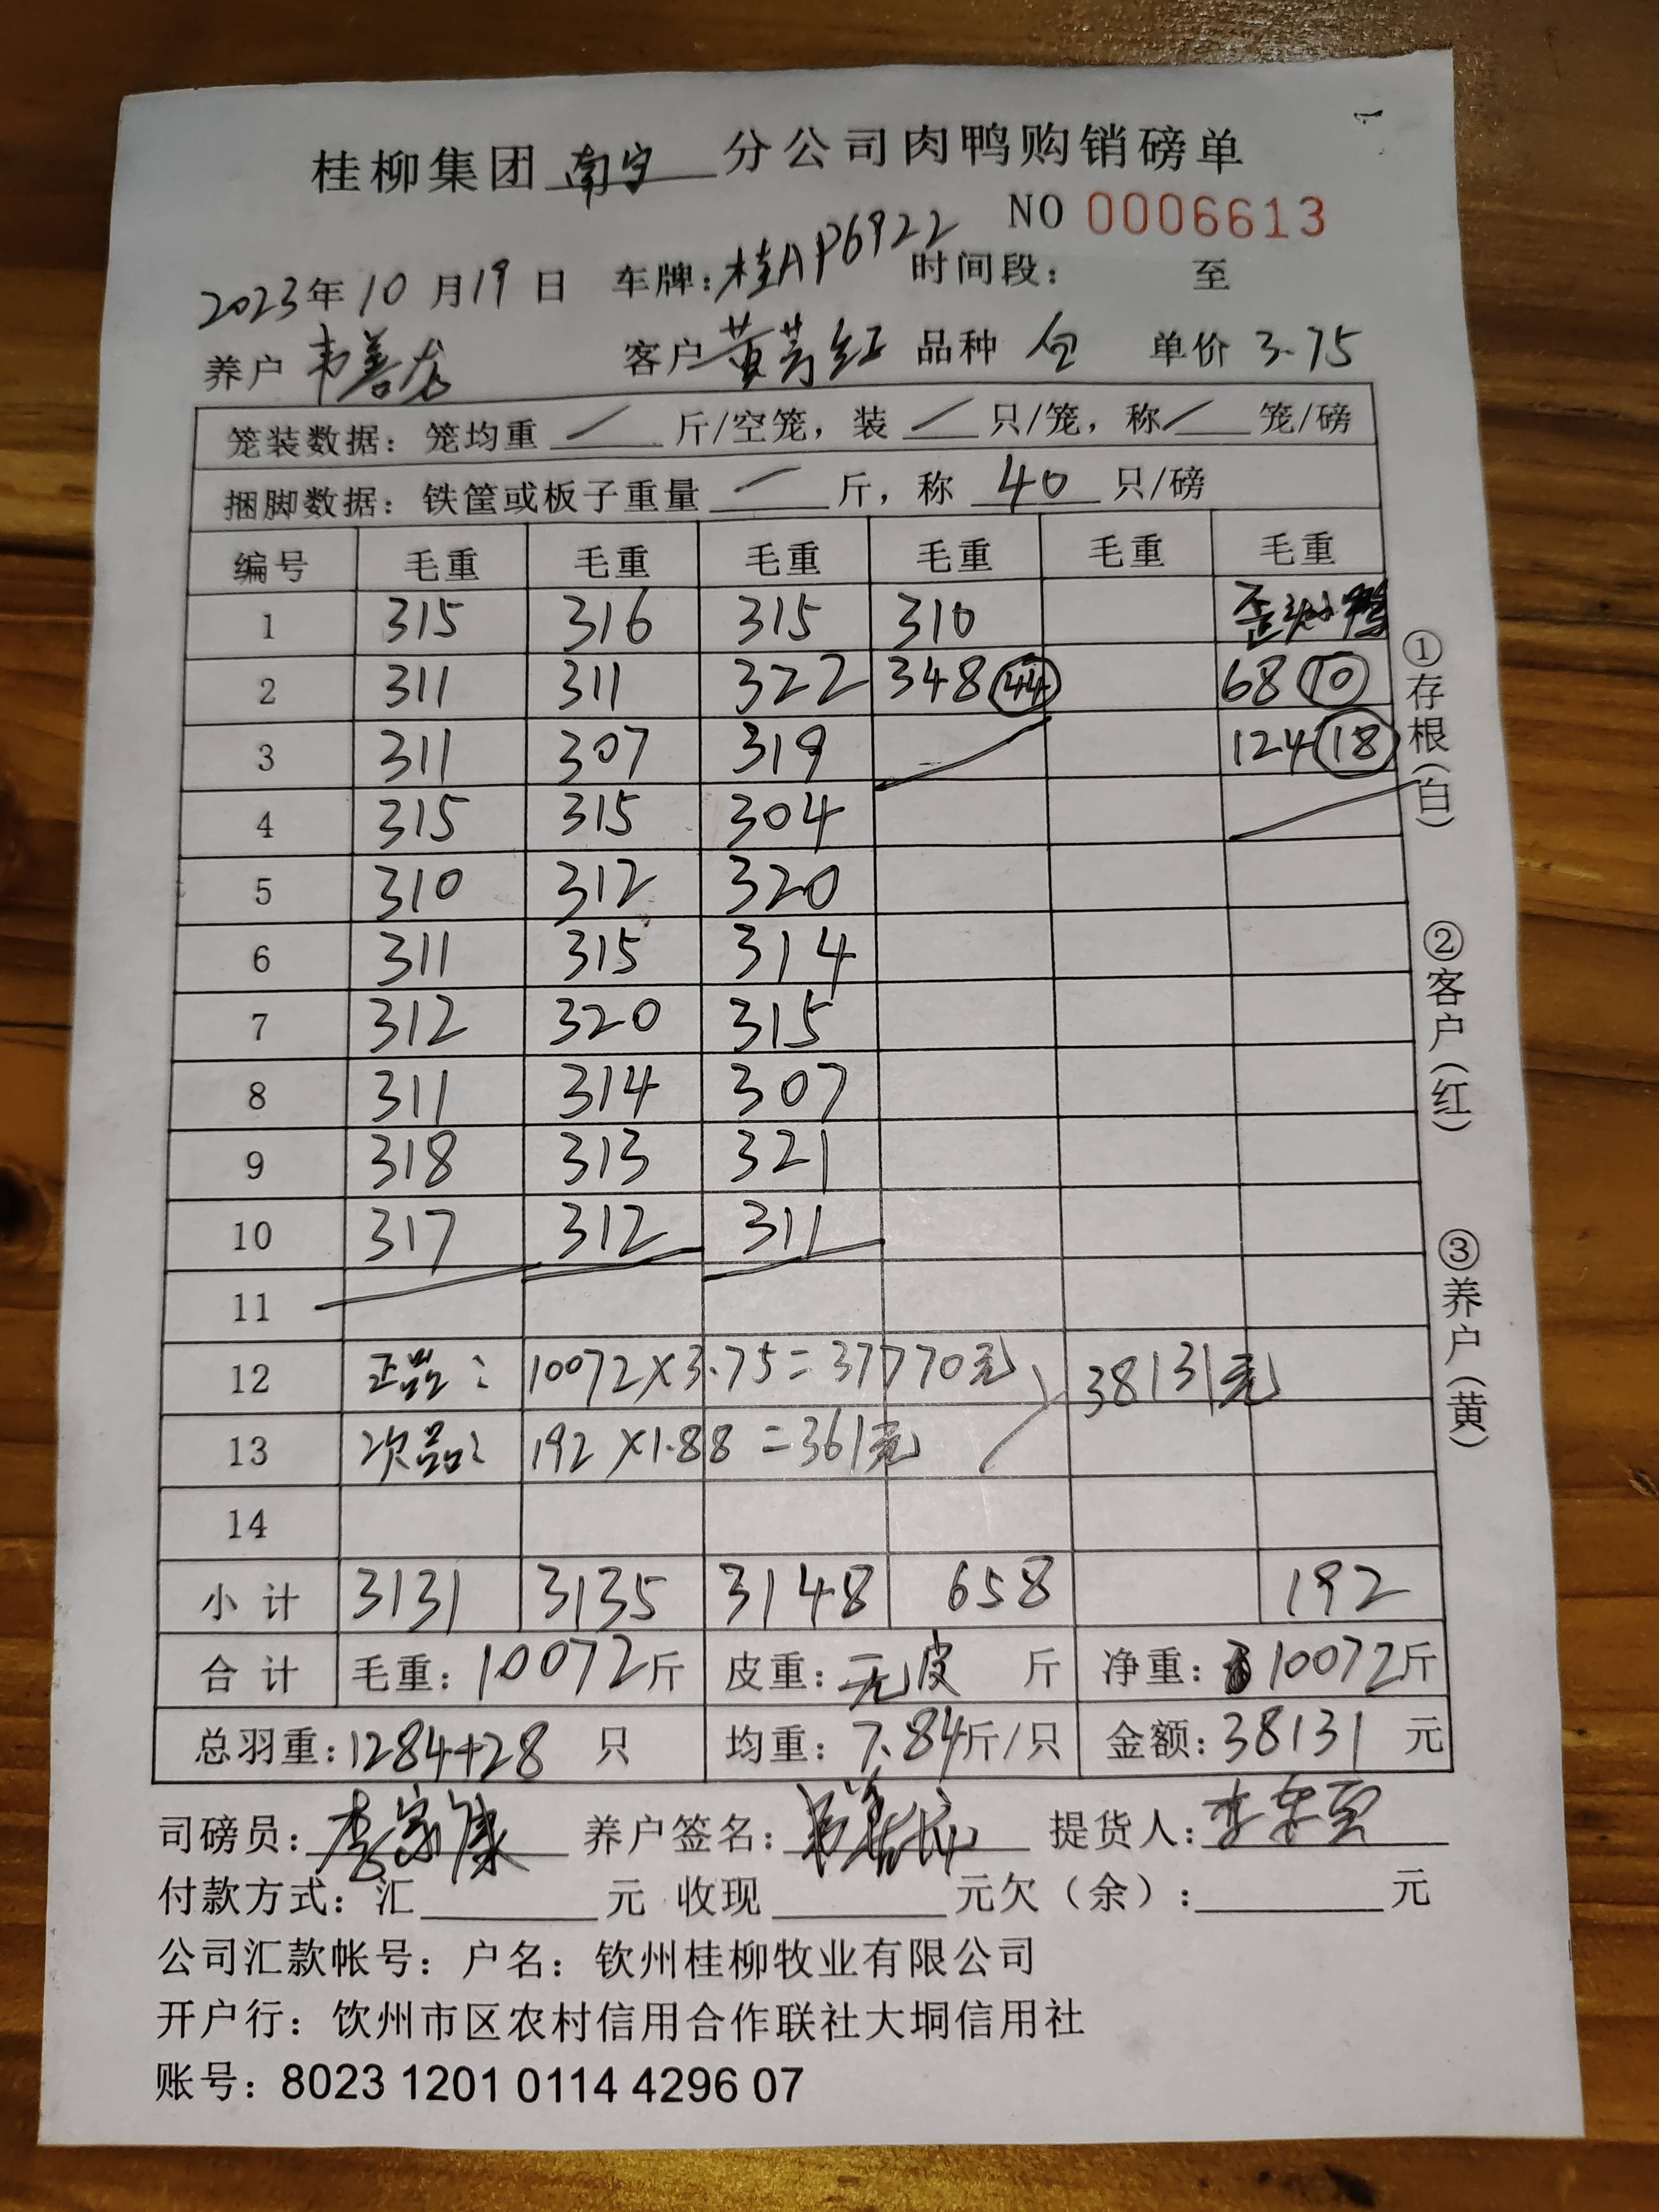 桂柳集团 南宁 分公司肉鸭购销磅单
NO 0006613
2023年10月19日 车牌:桂AP6922 时间段: 至
养户 韦善龙 客户 黄芳红 品种 仝 单价 3.75
笼装数据: 笼均重 / 斤/空笼, 装 / 只/笼, 称 / 笼/磅
捆脚数据: 铁筐或板子重量 / 斤, 称 40 只/磅
编号 毛重 毛重 毛重 毛重 毛重 毛重
1 315 316 315 310 歪头鸭
2 311 311 322 348 44 68 10
3 311 307 319 124 18
4 315 315 304
5 310 312 320
6 311 315 314
7 312 320 315
8 311 314 307
9 318 313 321
10 317 312 311
11
12 正品: 10072×3.75=37770元 38131元
13 次品: 192×1.88=361元
14
小计 3131 3135 3148 658 192
合计 毛重: 10072斤 皮重: 无皮 斤 净重: 10072斤
总羽重: 1284+28 只 均重: 7.84斤/只 金额: 38131 元
司磅员: 李家康 养户签名: 提货人:
付款方式: 汇 元 收现 元欠(余): 元
公司汇款帐号: 户名: 钦州桂柳牧业有限公司
开户行: 钦州市区农村信用合作联社大垌信用社
账号: 8023 1201 0114 4296 07
①存根(白)
②客户(红)
③养户(黄)